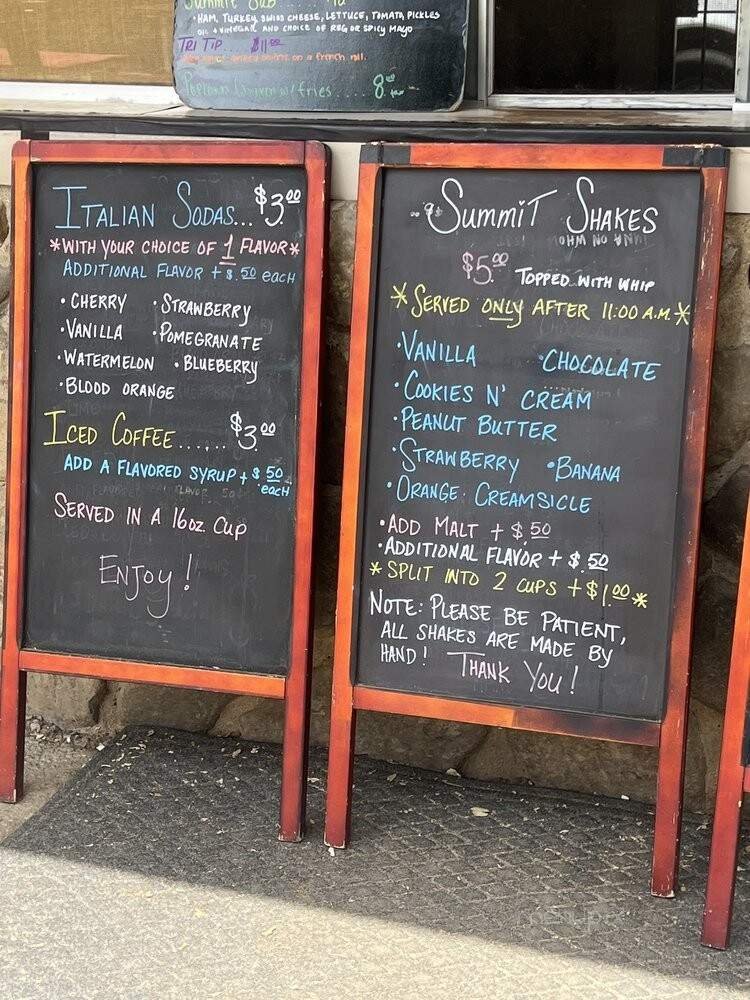 Summit Sub
• Ham, Turkey, Swiss Cheese, Lettuce, Tomato, Pickles
Oil & Vinegar and choice of Reg or Spicy Mayo
Tri Tip..... $11.00
on a french roll.
Popcorn Chicken w/ fries..... 8.00
Italian Sodas... $3.00
*With your choice of 1 flavor*
Additional flavor + $.50 each
• Cherry • Strawberry
• Vanilla • Pomegranate
• Watermelon • Blueberry
• Blood Orange
Iced Coffee...... $3.00
Add a flavored syrup + $.50 each
Served in a 16oz. cup
Enjoy!
Summit Shakes
$5.00 Topped with whip
*Served only after 11:00 A.M.*
• Vanilla • Chocolate
• Cookies N' Cream
• Peanut Butter
• Strawberry • Banana
• Orange Creamsicle
• Add Malt + $.50
• Additional Flavor + $.50
* Split into 2 cups + $1.00 *
Note: Please be patient,
all shakes are made by
hand! Thank You!